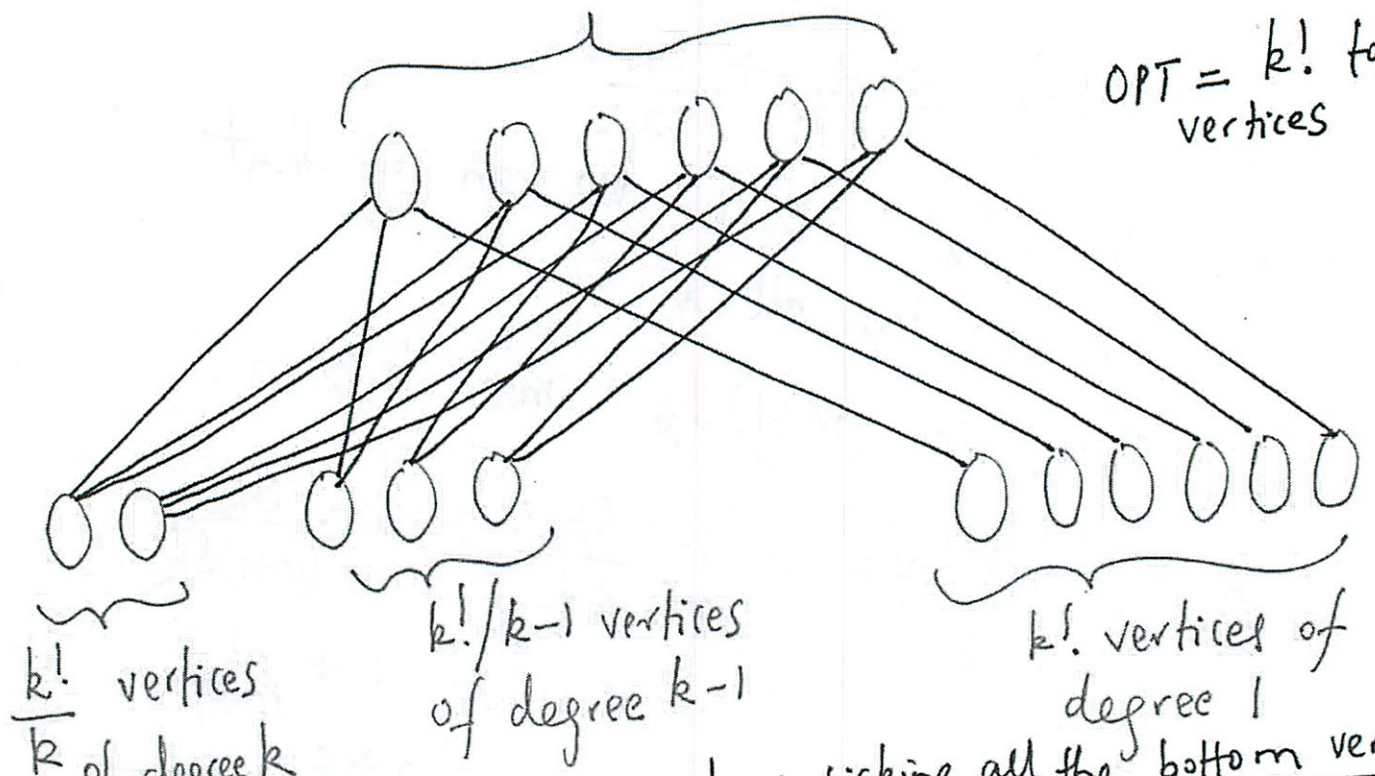 OPT = k! to
vertices
k!/k vertices
of degree k
k!/k-1 vertices
of degree k-1
k! vertices of
degree 1
picking all the bottom ver